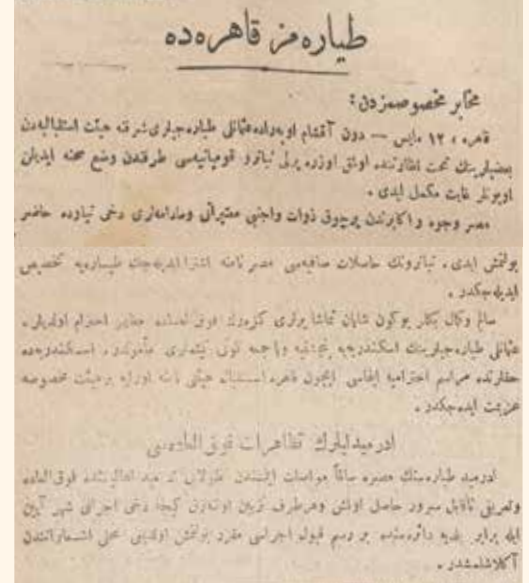 طياره‌مز قاهره‌ده
مخابر مخصوصمزدن :
قاهره ، ١٢ مايس — دون آقشام اوپه‌راده عثمانلى طياره‌جيلرى شرفنه هيئت استقباليه‌دن
بعضيلرينك تحت نظارتنده اولمق اوزره يرلى تياترو قومپانيه‌سى طرفندن وضع صحنه ايديلن
اويونلر غايت مكمل ايدى .
مصر وجوه و اكابرندن برچوق ذوات واجنبى معتبرانى ومادامه‌لرى دخى تياروده حاضر
بولنمش ايدى . تياترونك حاصلات صافيه‌سى مصر نامنه اشترا ايديله‌جك طياره‌يه تخصيص
ايديله‌جكدر .
سالم وكمال بكلر بوكون شايان تماشا يرلرى كزه‌رك فوق العاده مظهر احترام اولديلر .
عثمانلى طياره‌جيلرينك اسكندريه‌يه جمعه كونى مأمولدر . اسكندريه‌ده
حقلرنده مراسم احتراميه ايفاسى ايچون قاهره استقبال هيئتى نامنه اورايه بر هيئت مخصوصه
عزيمت ايده‌جكدر .
ادرميدليلرك تظاهرات فوق العاده‌سى
ادرميد طياره‌سنك مصره سالماً مواصلت ايتمسندن طولايى ادرميد اهاليسنده فوق العاده
وتعريفى ناقابل سرور حاصل اولمش وهر طرف تزيين اولنه‌رق كيجه دخى اجراى شهر آيين
ايله برابر بلديه دائره‌سنده بر رسم قبول اجراسى مقرر بولنمش اولديغى محلى اشعاراتندن
آكلاشلمشدر .